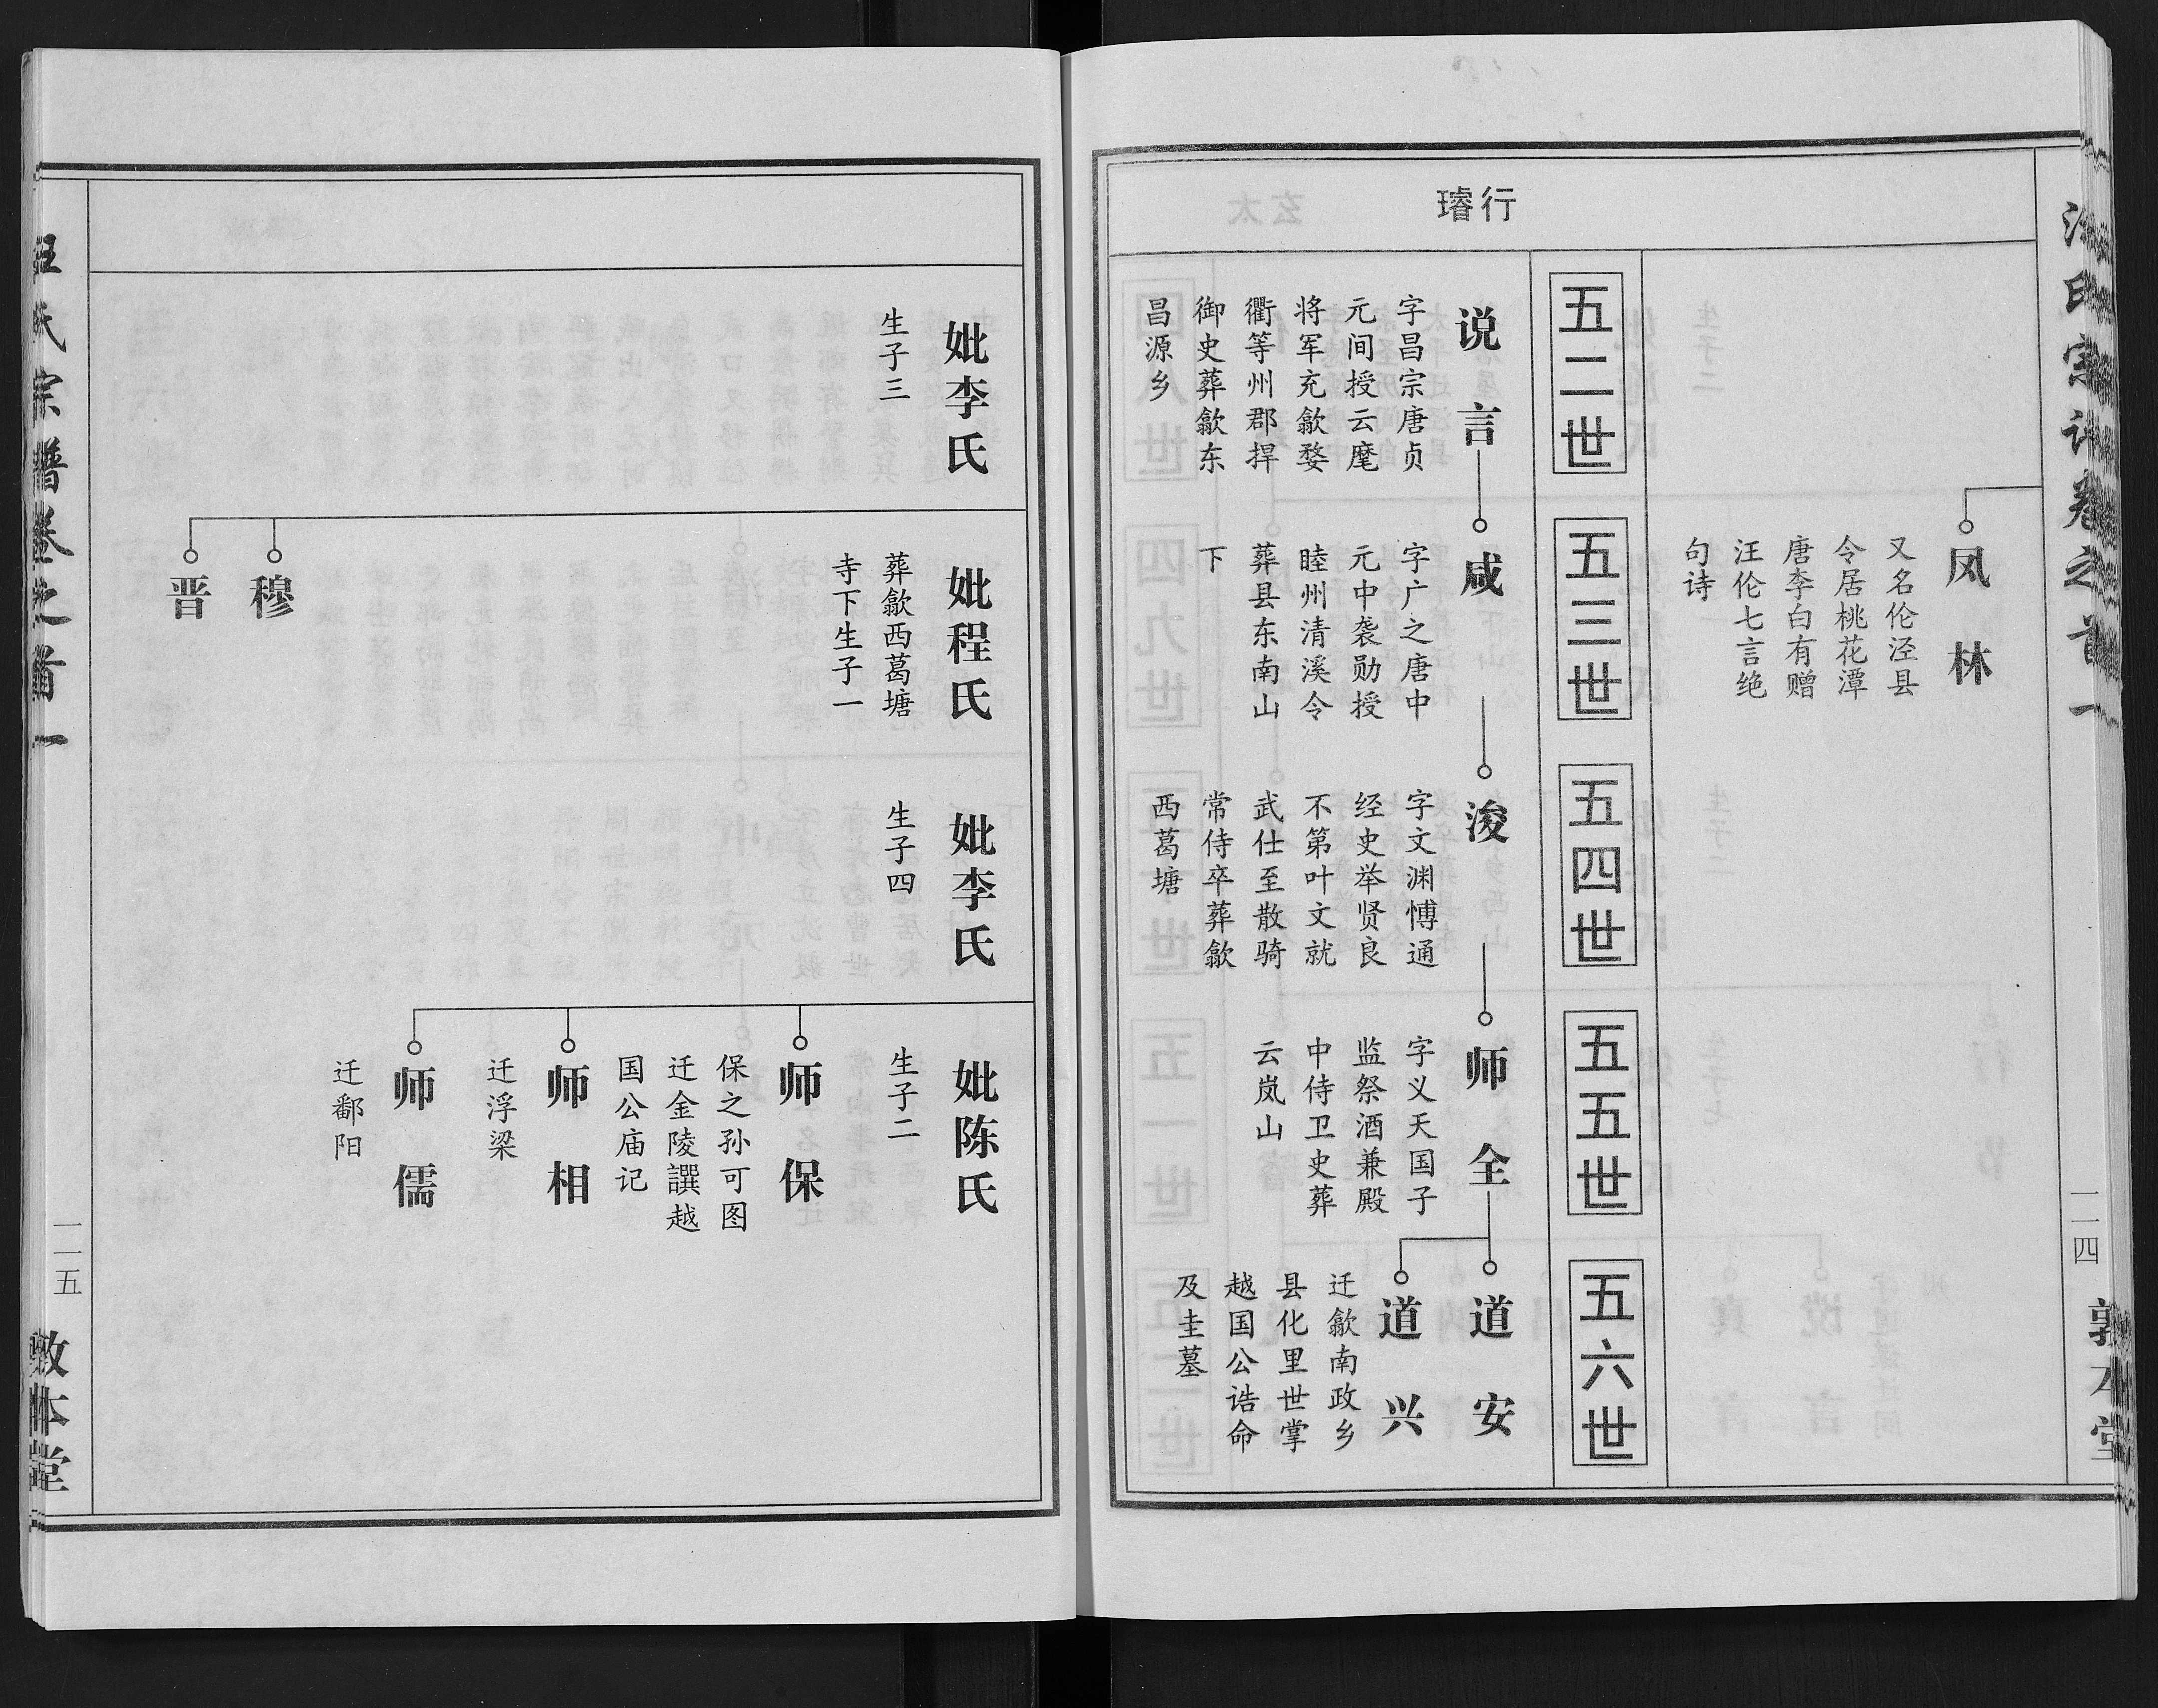 汪氏宗谱卷之首一
一一四
敦本堂
凤林
又名伦泾县
令居桃花潭
唐李白有赠
汪伦七言绝
句诗
五二世
五三世
五四世
五五世
五六世
璿行
说言
字昌宗唐贞
元间授云麾
将军充歙婺
衢等州郡捍
御史葬歙东
昌源乡
咸
字广之唐中
元中袭勋授
睦州清溪令
葬县东南山
下
浚
字文渊愽通
经史举贤良
不第叶文就
武仕至散骑
常侍卒葬歙
西葛塘
师全
字义天国子
监祭酒兼殿
中侍卫史葬
云岚山
道安
道兴
迁歙南政乡
县化里世掌
越国公诰命
及圭墓
妣李氏
生子三
妣程氏
葬歙西葛塘
寺下生子一
穆
晋
妣李氏
生子四
妣陈氏
生子二
师保
保之孙可图
迁金陵譔越
国公庙记
师相
迁浮梁
师儒
迁鄱阳
汪氏宗谱卷之首一
一一五
敦本堂